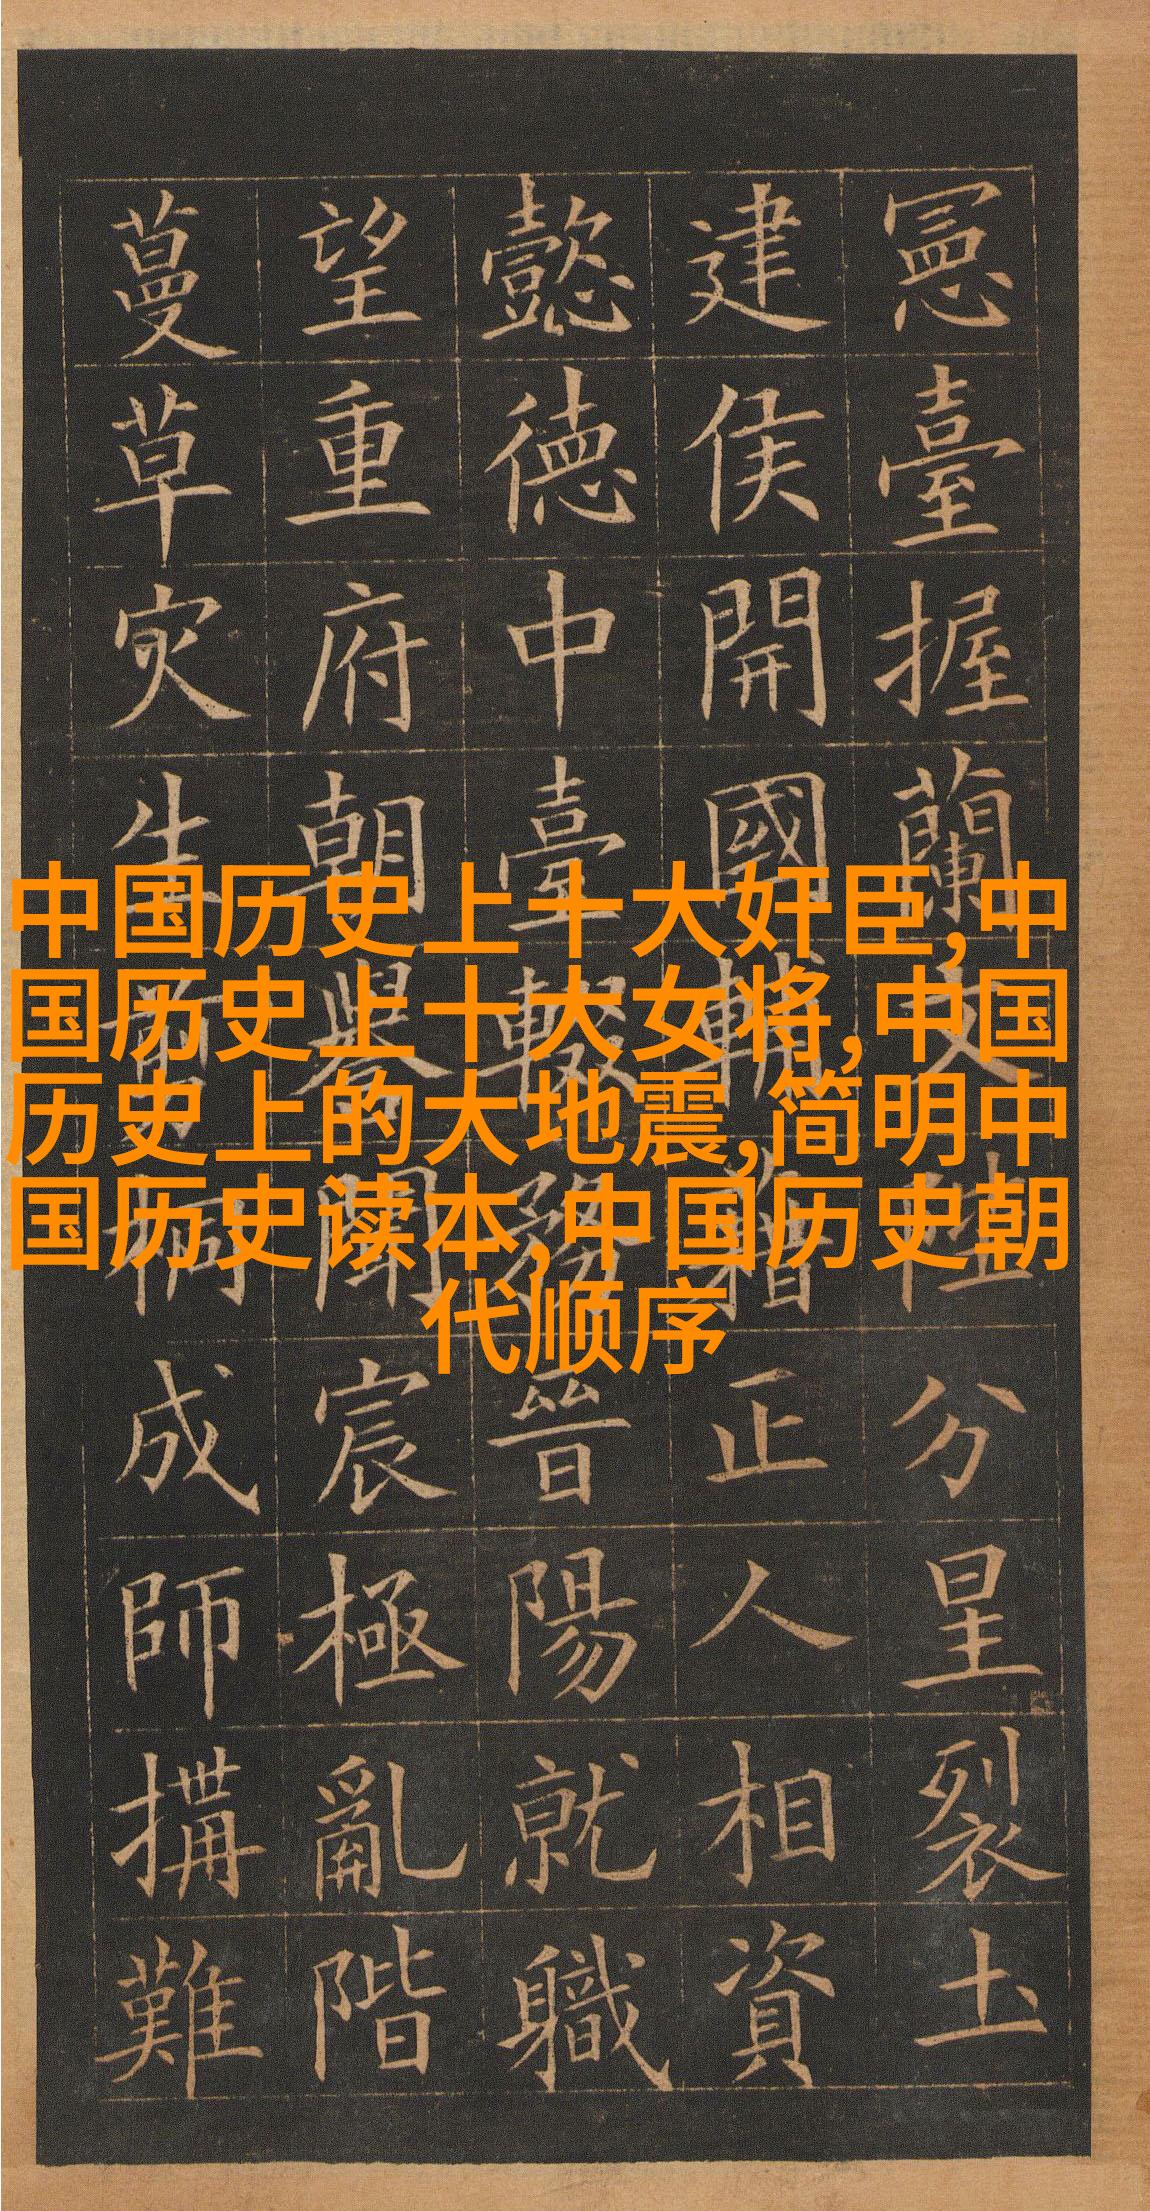 憲臺握蘭文陛分星裂土
建侯開國輔藉正人相資
懿德中臺輟務晉陽就職
望重府朝譽聞宸極亂階
蔓草灾生翦桐成師搆難
中国历史上十大奸臣,中
国历史上十大女将,中国
历史上的大地震,简明中
国历史读本,中国历史朝
代顺序